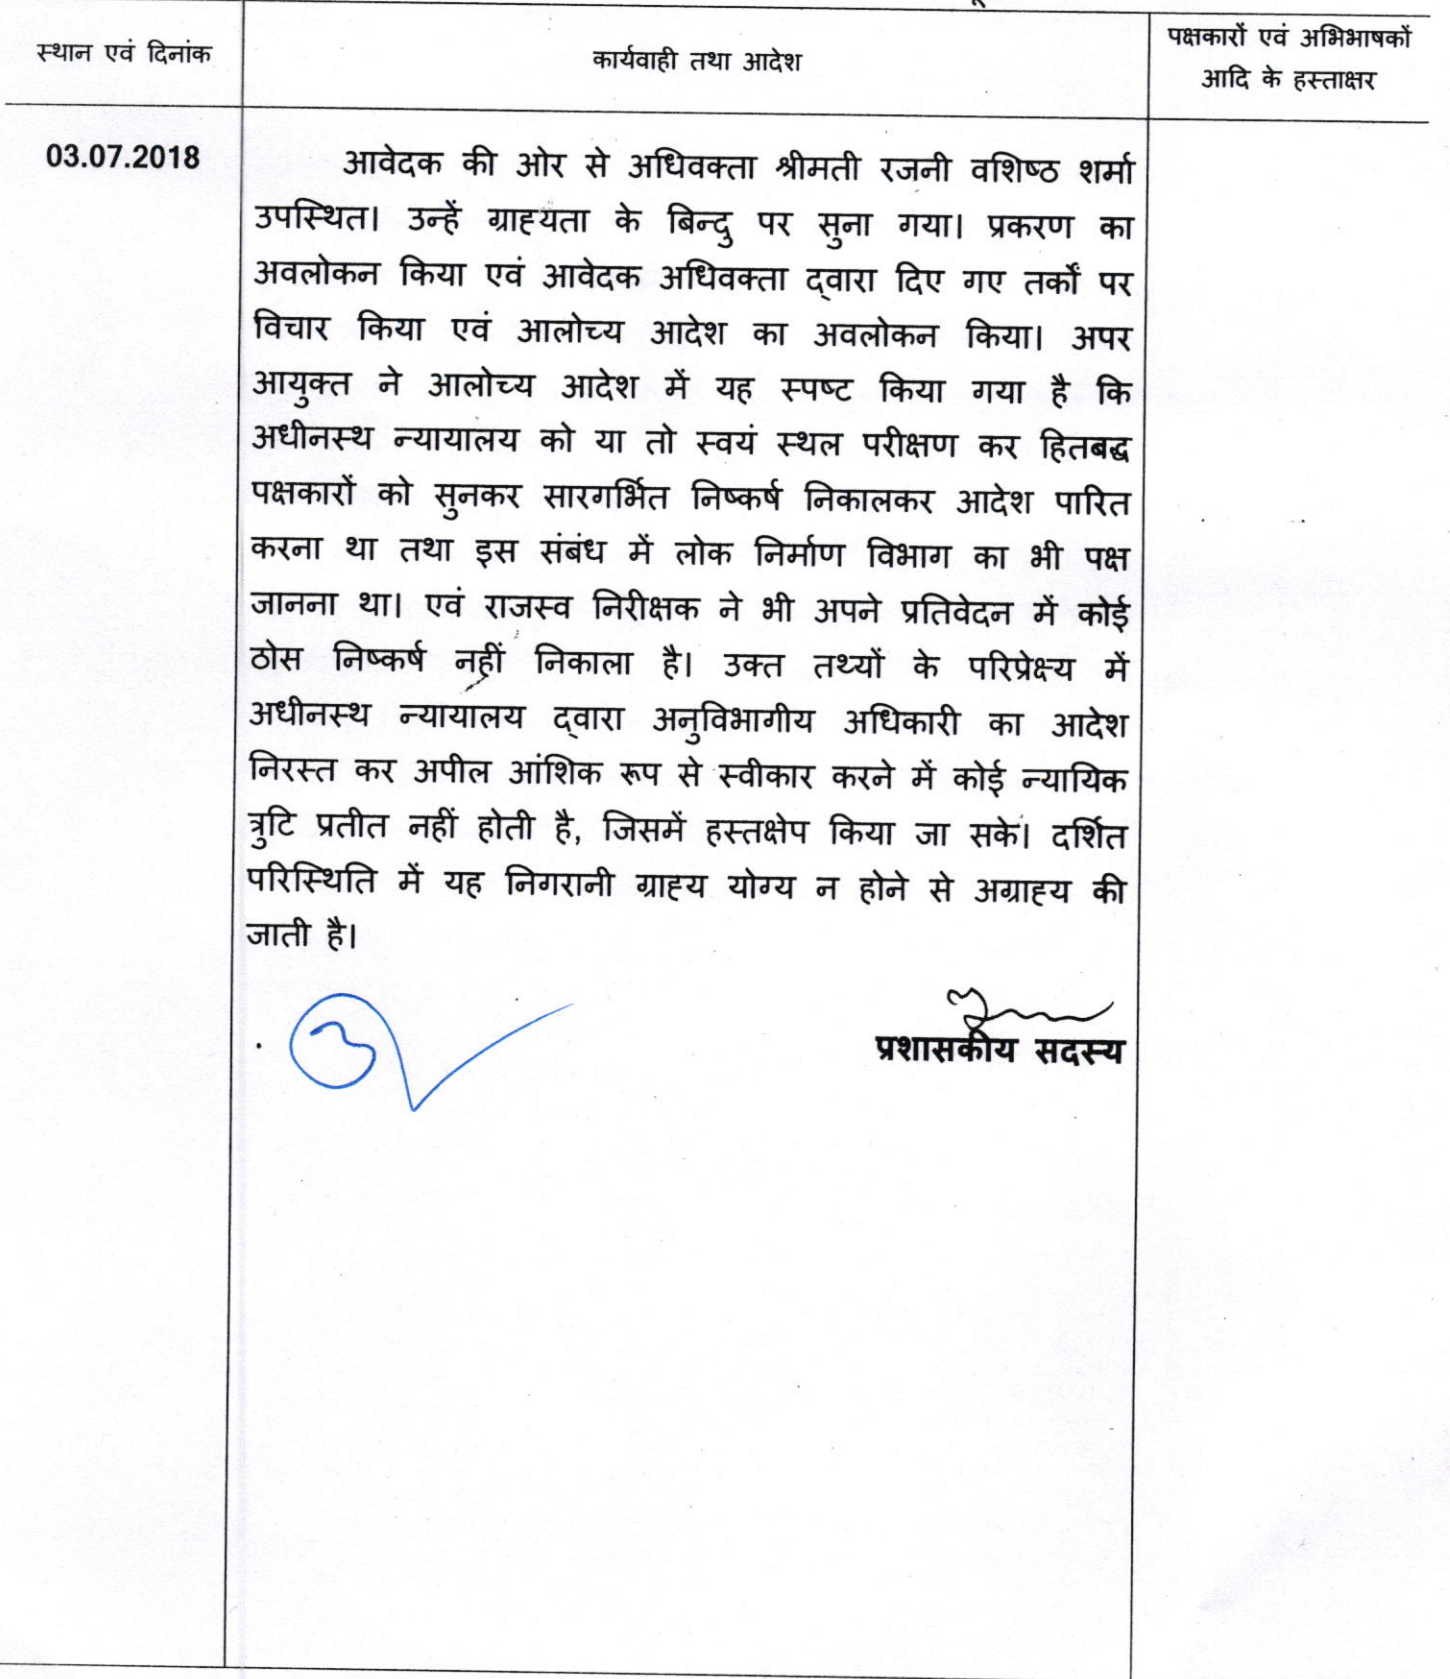 स्थान एवं दिनांक
कार्यवाही तथा आदेश
पक्षकारों एवं अभिभाषकों
आदि के हस्ताक्षर
03.07.2018
आवेदक की ओर से अधिवक्ता श्रीमती रजनी वशिष्ठ शर्मा
उपस्थित। उन्हें ग्राह्यता के बिन्दु पर सुना गया। प्रकरण का
अवलोकन किया एवं आवेदक अधिवक्ता द्वारा दिए गए तर्कों पर
विचार किया एवं आलोच्य आदेश का अवलोकन किया। अपर
आयुक्त ने आलोच्य आदेश में यह स्पष्ट किया गया है कि
अधीनस्थ न्यायालय को या तो स्वयं स्थल परीक्षण कर हितबद्ध
पक्षकारों को सुनकर सारगर्भित निष्कर्ष निकालकर आदेश पारित
करना था तथा इस संबंध में लोक निर्माण विभाग का भी पक्ष
जानना था। एवं राजस्व निरीक्षक ने भी अपने प्रतिवेदन में कोई
ठोस निष्कर्ष नहीं निकाला है। उक्त तथ्यों के परिप्रेक्ष्य में
अधीनस्थ न्यायालय द्वारा अनुविभागीय अधिकारी का आदेश
निरस्त कर अपील आंशिक रूप से स्वीकार करने में कोई न्यायिक
त्रुटि प्रतीत नहीं होती है, जिसमें हस्तक्षेप किया जा सके। दर्शित
परिस्थिति में यह निगरानी ग्राह्य योग्य न होने से अग्राह्य की
जाती है।
प्रशासकीय सदस्य